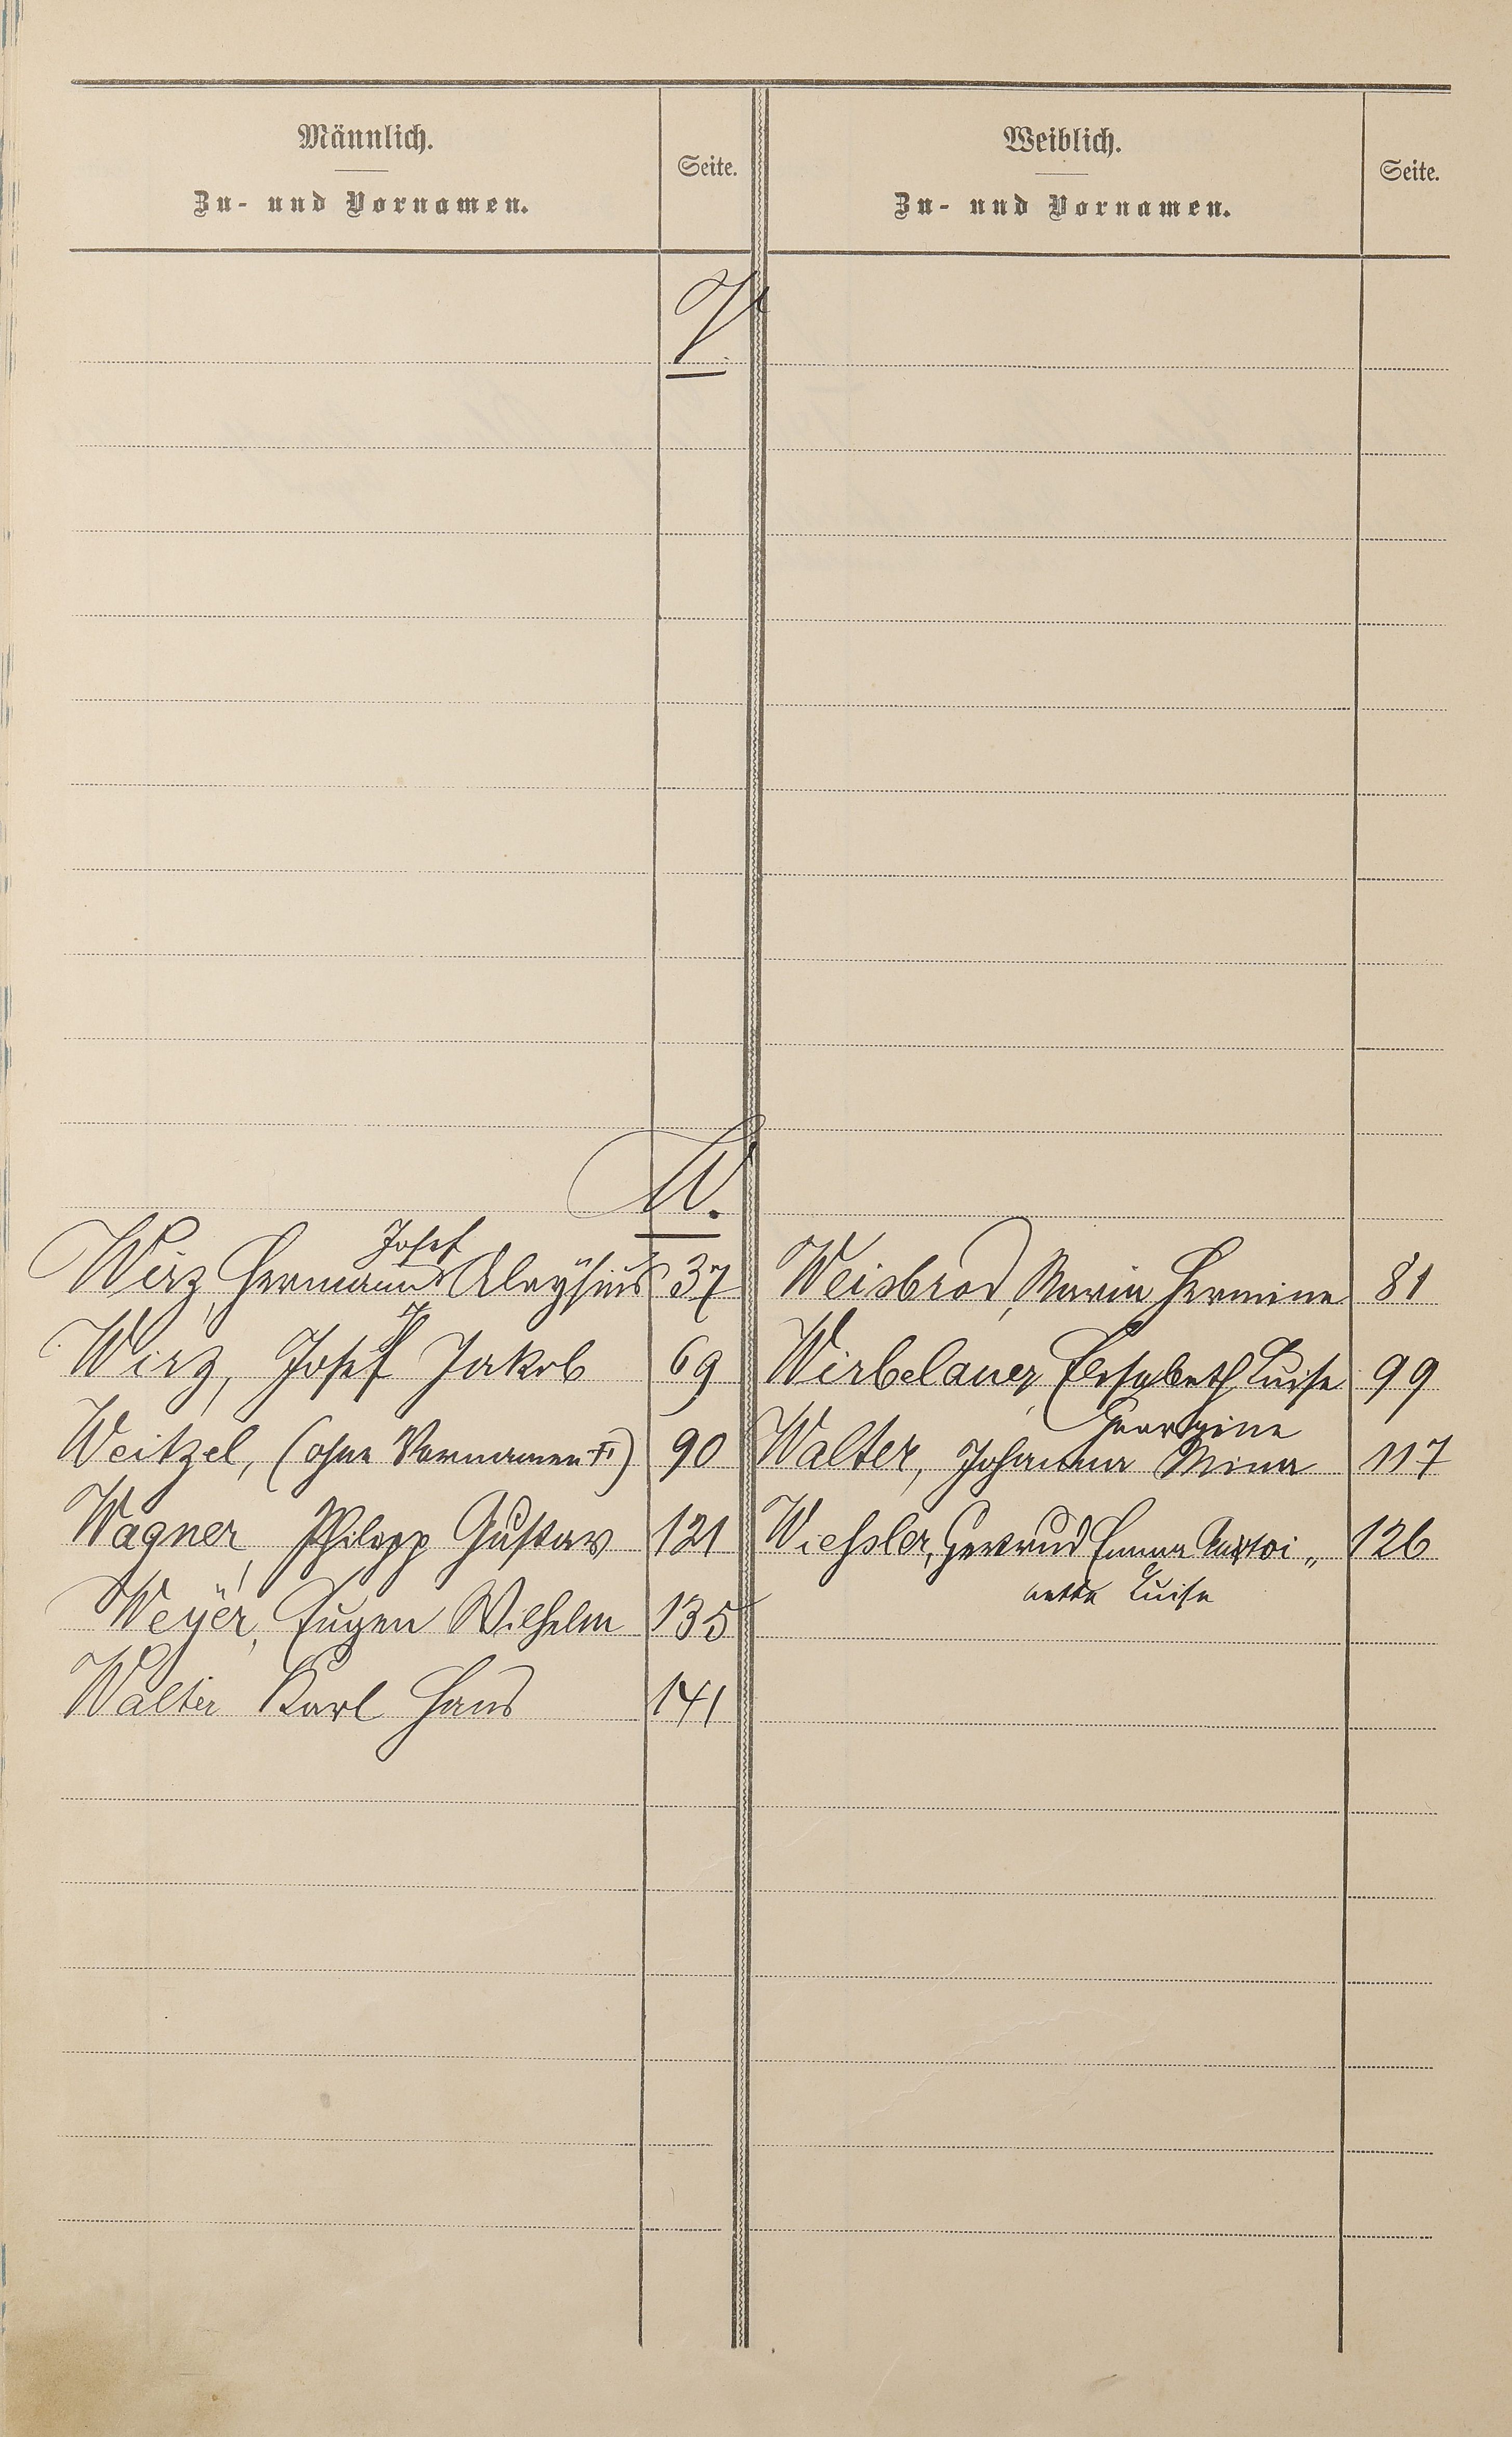 Männlich.
Zu- und Vornamen.
Seite.
Weiblich.
Zu- und Vornamen.
Seite.
V.
W.
Josef
Wirz, Hermann Aloysius 37
Weisbrod, Maria Hermine 81
Wirz, Josef Jakob 69
Wirbelauer, Elisabeth Luise 99
Georgine
Weitzel, (ohne Vornamen ) 90
Walter, Johanna Mina 117
Wagner, Philipp Gustav 121
Wiehsler, Gertrud Emma Antoi„ 126
nette Luise
Weyer, Eugen Wilhelm 135
Walter Karl Hans 141